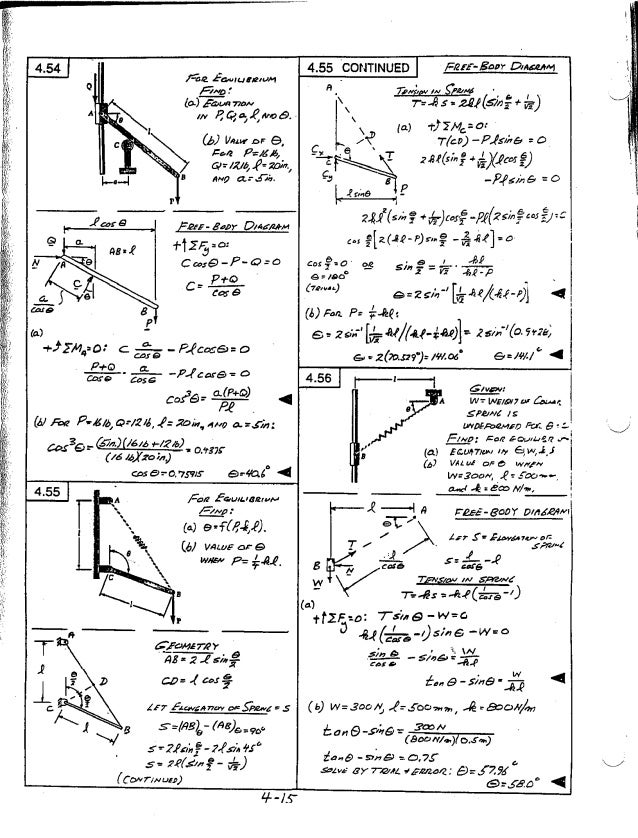 4.54
Q
A
θ
l
C
B
a
P
FOR EQUILIBRIUM
FIND:
(a) EQUATION
IN P, Q, a, l, AND θ.
(b) VALUE OF θ,
FOR P=16 lb,
Q=12 lb, l=20 in.,
AND a=5 in.
l cos θ
Q
a
AB = l
N
A
θ
C
θ
B
P
a/cos θ
FREE-BODY DIAGRAM
+↑ΣFy=0:
C cos θ - P - Q = 0
C = (P+Q)/cos θ
(a)
+↻ΣMA=0: C a/cos θ - Pl cos θ = 0
(P+Q)/cos θ · a/cos θ - Pl cos θ = 0
cos³θ = a(P+Q)/Pl ◄
(b) FOR P=16 lb, Q=12 lb, l=20 in, AND a=5in:
cos³θ = (5in.)(16 lb+12 lb)/(16 lb)(20in.) = 0.4375
cos θ = 0.75915 θ=40.6° ◄
4.55
A
l
θ
C
B
l
P
FOR EQUILIBRIUM
FIND:
(a) θ=f(P,k,l).
(b) VALUE OF θ
WHEN P=¼kl.
A
l
θ/2
θ/2
D
C
l
B
GEOMETRY
AB = 2 l sin θ/2
CD = l cos θ/2
LET ELONGATION OF SPRING = S
S=(AB)θ-(AB)θ=90°
S = 2l sin θ/2 - 2l sin 45°
S = 2l(sin θ/2 - 1/√2)
(CONTINUED)
4.55 CONTINUED
FREE-BODY DIAGRAM
A
D
T
Cx
C
Cy
θ
B
P
l sin θ
TENSION IN SPRING
T=ks = 2kl(sin θ/2 + 1/√2)
(a) +↻ΣMC=0:
T(CD) - Pl sin θ = 0
2kl(sin θ/2 + 1/√2)(l cos θ/2)
- Pl sin θ = 0
2kl²(sin θ/2 + 1/√2)cos θ/2 - Pl(2 sin θ/2 cos θ/2)=0
cos θ/2 [2(kl-P) sin θ/2 - 2/√2 kl] = 0
cos θ/2 = 0 OR sin θ/2 = 1/√2 · kl/(kl-P)
θ=180°
(TRIVIAL)
θ = 2 sin⁻¹[1/√2 kl/(kl-P)] ◄
(b) FOR P=¼kl:
θ = 2 sin⁻¹[1/√2 kl/(kl-¼kl)] = 2 sin⁻¹(0.9428)
θ = 2(70.529°) = 141.06° θ=141.1° ◄
4.56
l
A
θ
B
GIVEN:
W = WEIGHT OF COLLAR
SPRING IS
UNDEFORMED FOR θ =
FIND: FOR EQUILIBR
(a) EQUATION IN θ, W, k, l
(b) VALUE OF θ WHEN
W=300N, l=500mm,
and k=800 N/m.
l
A
θ
T
B
N
W
l/cos θ
FREE-BODY DIAGRAM
LET S = ELONGATION OF
SPRING
S = l/cos θ - l
TENSION IN SPRING
T=ks = kl(1/cos θ - 1)
(a)
+↑ΣFy=0: T sin θ - W = 0
kl(1/cos θ - 1) sin θ - W = 0
sin θ/cos θ - sin θ = W/kl
tan θ - sin θ = W/kl ◄
(b) W=300N, l=500mm, k=800N/m
tan θ - sin θ = 300N/(800 N/m)(0.5m)
tan θ - sin θ = 0.75
SOLVE BY TRIAL + ERROR: θ=57.96°
θ=58.0° ◄
4-15